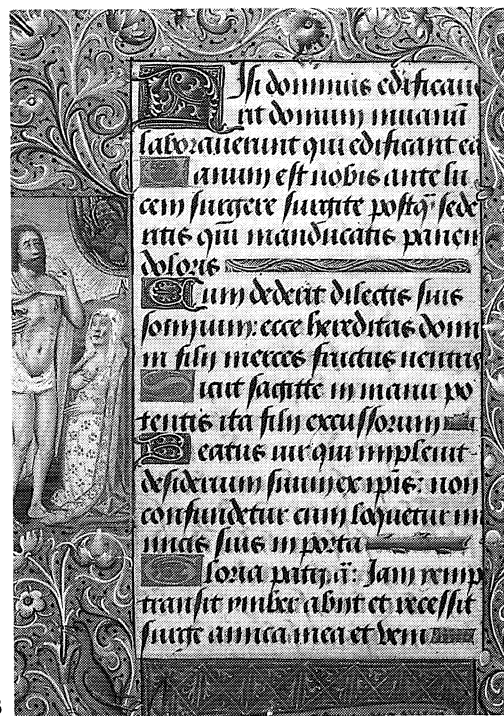 Nisi dominus edificaue
rit domum in uanū
laborauerunt qui edificant eā
Uanum est uobis ante lu
cem surgere surgite postq̄ sede
ritis qui manducatis panem
doloris
Cum dederit dilectis suis
sompnum: ecce hereditas domi
ni filij merces fructus uentris
Sicut sagitte in manu po
tentis ita filij excussorum
Beatus uir qui impleuit
desiderium suum ex ipis: non
confundetur cum loquetur in
imicis suis in porta
Gloria patri. ā: Jam yemps
transiit ymber abiit et recessit
surge amica mea et veni